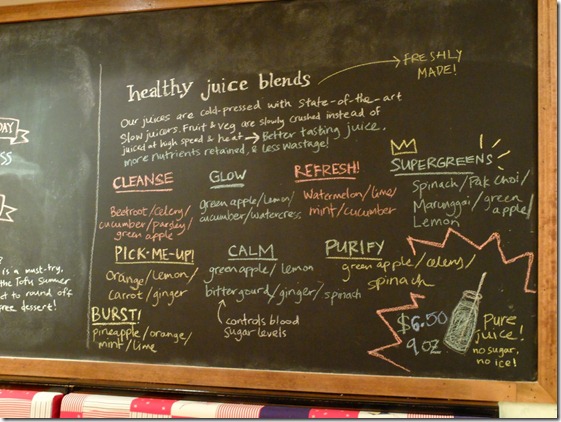 healthy juice blends
FRESHLY
MADE!
Our juices are cold-pressed with state-of-the-art
slow juicers. Fruit & veg are slowly crushed instead of
juiced at high speed & heat → Better tasting juice,
more nutrients retained, & less wastage!
CLEANSE
Beetroot/celery/
cucumber/parsley/
green apple
GLOW
green apple/lemon/
cucumber/watercress
REFRESH!
Watermelon/lime/
mint/cucumber
SUPERGREENS
Spinach/Pak choi/
Marunggai/green
apple/
Lemon
PICK-ME-UP!
Orange/lemon/
Carrot/ginger
CALM
green apple/lemon
bittergourd/ginger/spinach
controls blood
sugar levels
PURIFY
green apple/celery/
spinach
BURST!
pineapple/orange/
mint/lime
$6.50
9 oz
Pure
juice!
no sugar,
no ice!
DAY
is a must-try.
the Tofu Summer
et to round off
free dessert!